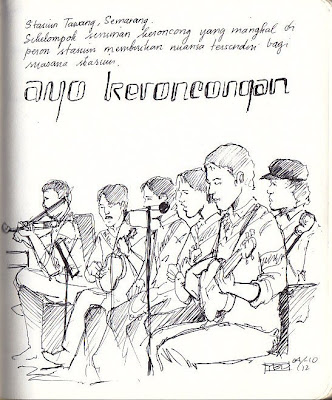 Stasiun Tawang, Semarang.
Sekelompok seniman keroncong yang mangkal di
peron stasiun memberikan nuansa tersendiri bagi
suasana stasiun.
ayo keroncongan
04/10
/12